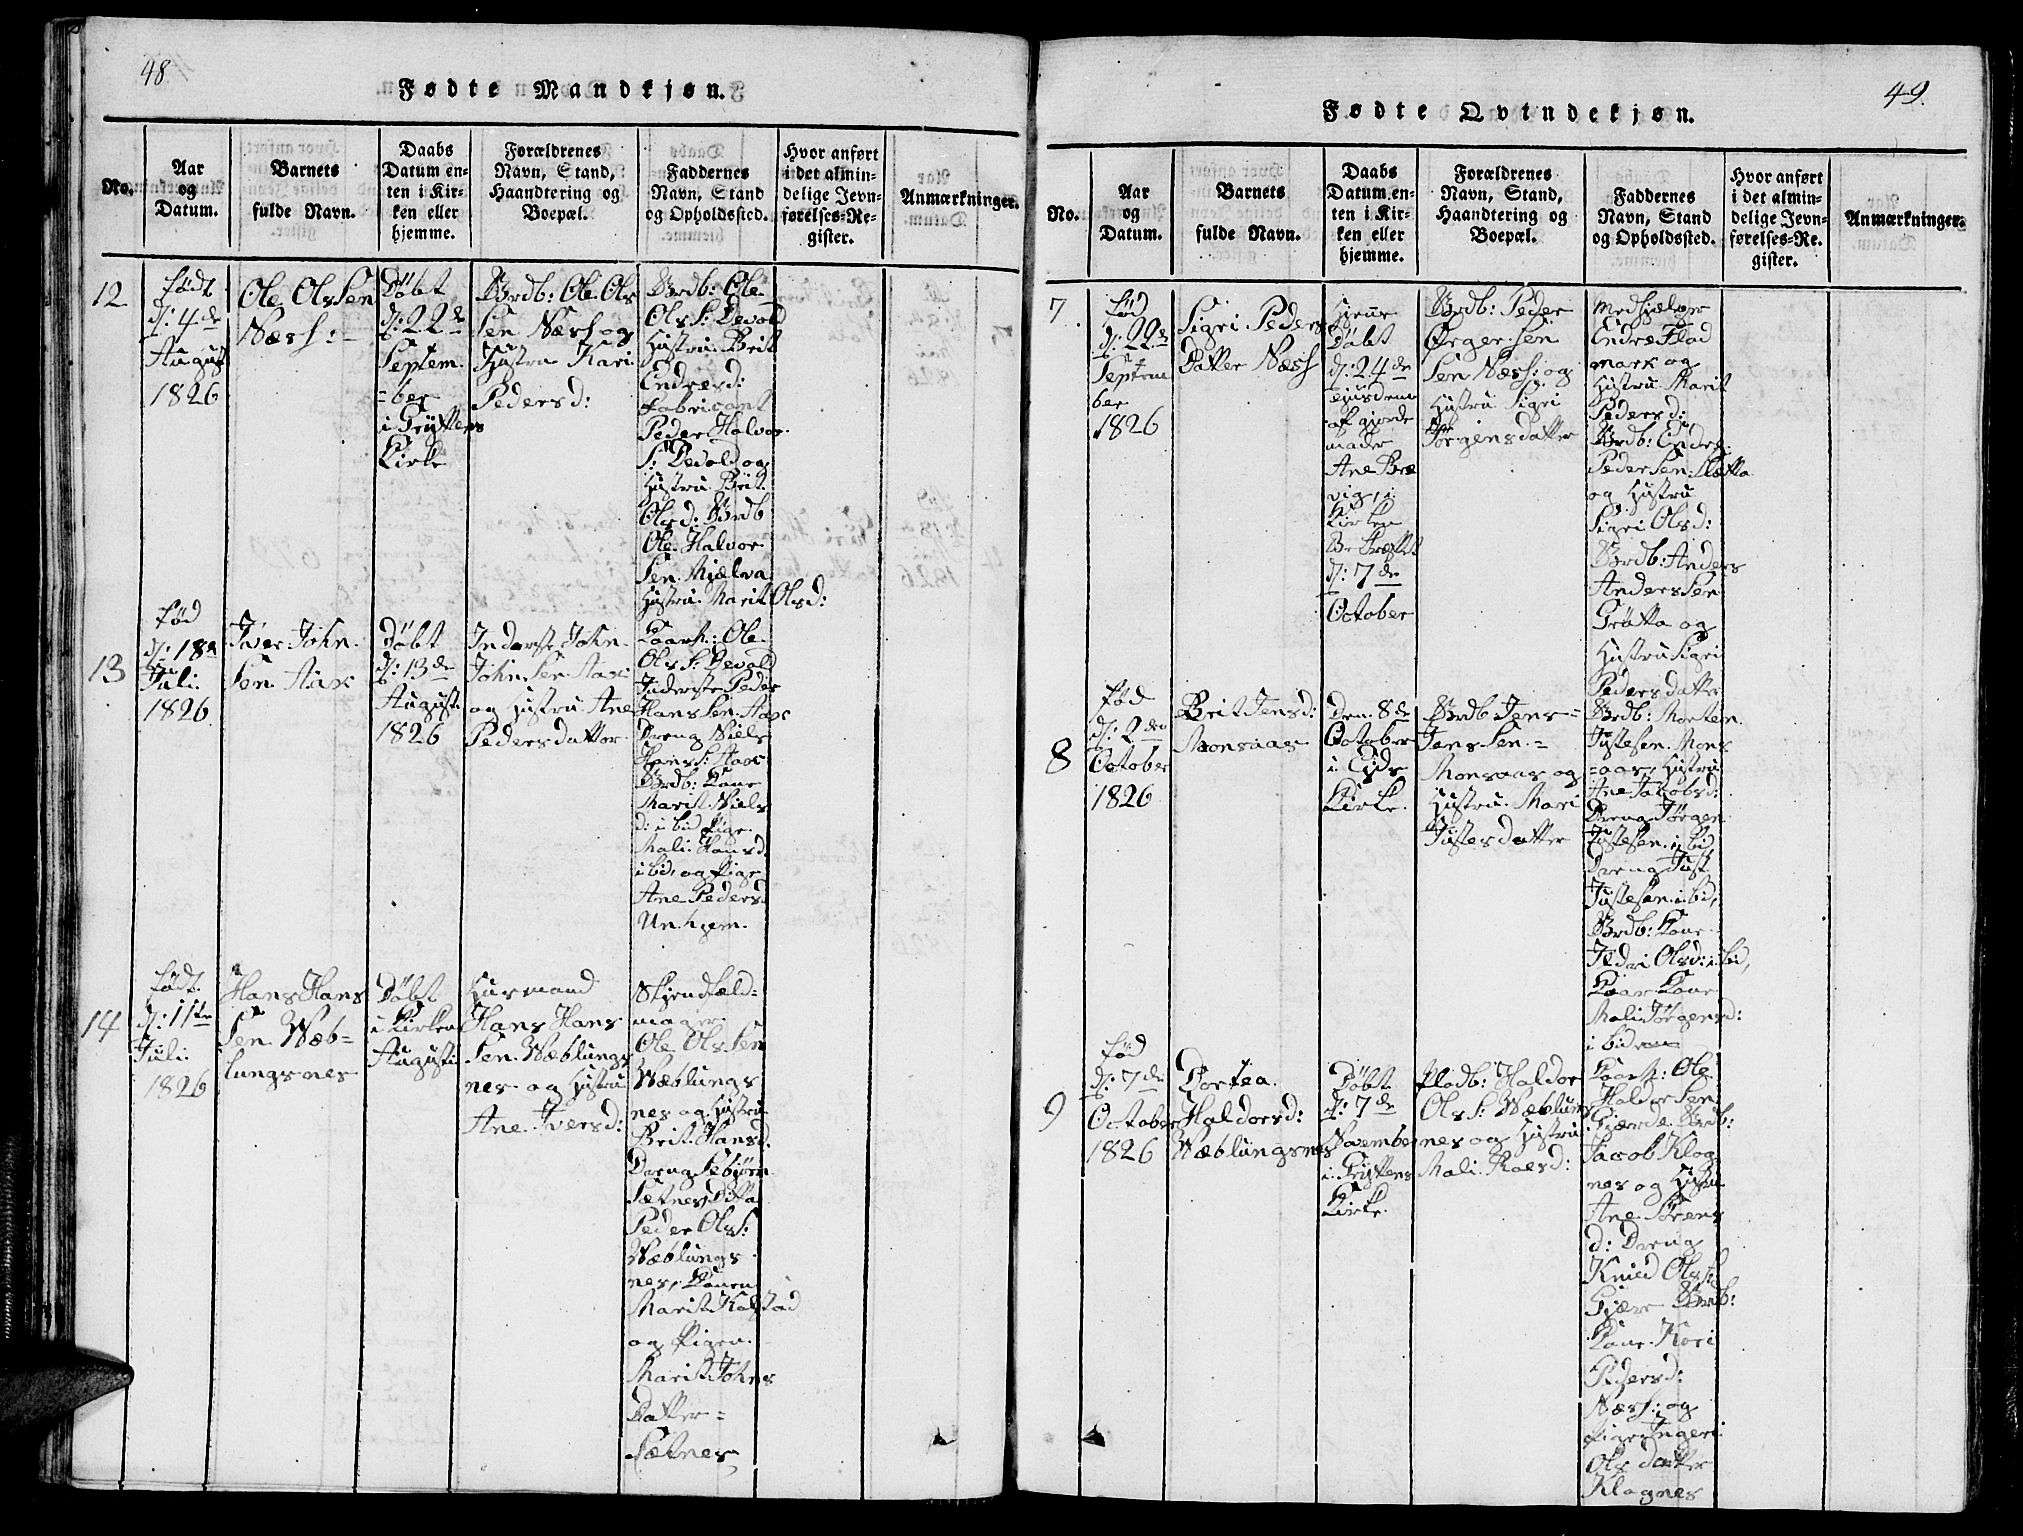 48.
Fødte Mandkjøn.
No.
Aar
og
Datum.
Barnets
fulde Navn.
Daabs
Datum en-
ten i Kir-
ken eller
hjemme.
Forældrenes
Navn, Stand,
Haandtering og
Boepæl.
Faddernes
Navn, Stand
og Opholdssted.
Hvor anført
i det almin-
delige Jevn-
førelses-Re-
gister.
Anmærkninger.
12
født
d: 4de
August
1826
Ole OlsSen
Næss:
Døbt
d: 22de
Septem
=ber
i Gryttens
Kirke
Brdb: Ole Ols
Sen Næss og
Hustru Kari
Pedersd:
Brdb: Ole
Ols S: Devold
Hustru Brit
Endresd:
fabricant
Peder Halvor
S: Devold og
Hustru Brit
Olsd: Brdb
Ole Halvor
Sen Mjælva
Hustru Marit Olsd:
13
fød
d: 18de
Juli
1826
Iver John
Sen Aax
Døbt
d: 13de
August
1826
Inderste John
John Sen Aax
og Hustru Ane
Pedersdatter
Kaarh: Ole
Ols S: Devold
Inderste Peder
Hans Sen Aax
Dreng Niels
Hans S: Aax
Brdb: Kone
Marit Niels
d: ibid Pige
Mali Hansd
ibid, og Pige
Ane Pedersd
Unhjem.
14
født
d: 11te
Juli
1826
Hans Hans
Sen Wæb=
lungsnes
Døbt
i Kirken
August
Husmand
Hans Hans
Sen Wæblungs
nes og Hustru
Ane Iversd:
Skjendfeld=
mager
Ole Ols Sen
Wæblungs
nes og Hustru
Brit Hansd
Dreng Sebjørn
Sætnes, Ditto
Peder Ols S:
Wæblungs
nes, Konen
Marit
og Pigen
Marit Johns
Datter=
Sætnes
49.
Fødte Qvindekjøn.
No.
Aar
og
Datum.
Barnets
fulde Navn.
Daabs
Datum en-
ten i Kir-
ken eller
hjemme.
Forældrenes
Navn, Stand,
Haandtering og
Boepæl.
Faddernes
Navn, Stand
og Opholdssted.
Hvor anført
i det almin-
delige Jevn-
førelses-Re-
gister.
Anmærkninger.
7
fød
d: 22de
Septem
ber
1826
Sigri Peders
Datter Næss
Hjeme
Døbt
d: 24de
ejusdem
af gjorde
moder
Ane Bre
vig, i
Kirken
Bekræftet
d: 7de
October
Brdb: Peder
Ørger Sen
Sen Næss: og
Hustru Sigri
Jørgensdatter
Medhjelper
Endre Flad
mark og
Hustru Marit
Pedersd:
Brdb: Endre
Peder Sen Sletta
og Hustru
Sigri Olsd:
Brdb: Anders
Anders Sen
Grøtta og
Hustru Sigri
Pedersdatter
8
fød
d: 2den
October
1826
Brit Jensd:
Monsaas
Den 8de
October
i Eids
Kirke.
Brdb Jens=
Jens Sen=
Monsaas og
Hustru Mari
Justesdatter
Brdb: Morten
Justesen Mons
=aas, Hustru
Ane Jacobsd:
Dreng Jørgen
Justesen ibid
Dreng Just
Justesen ibid,
Brdb: Kone
Olsd: ibid,
Kaar Kone
Mali Jørgensd:
ibidem
9
fød
d: 7de
October
1826
Dortea
Haldorsd:
Wæblungsnes
Døbt
d: 7de
November
i Gryttens
Kirke.
Pladb: Haldor
Ols S: Wæblungs
nes og Hustru
Mali Roesd:
Kaarh: Ole
Haldor Sen
Gjærde Brdb:
Jacob Klog
nes og Hustru
Ane Sørens
d: Dreng
Knud Ols S:
Brdb:
Kone Kari
Pedersd:
Næss: og
Pige Ingeri
Ols datter
Klognes